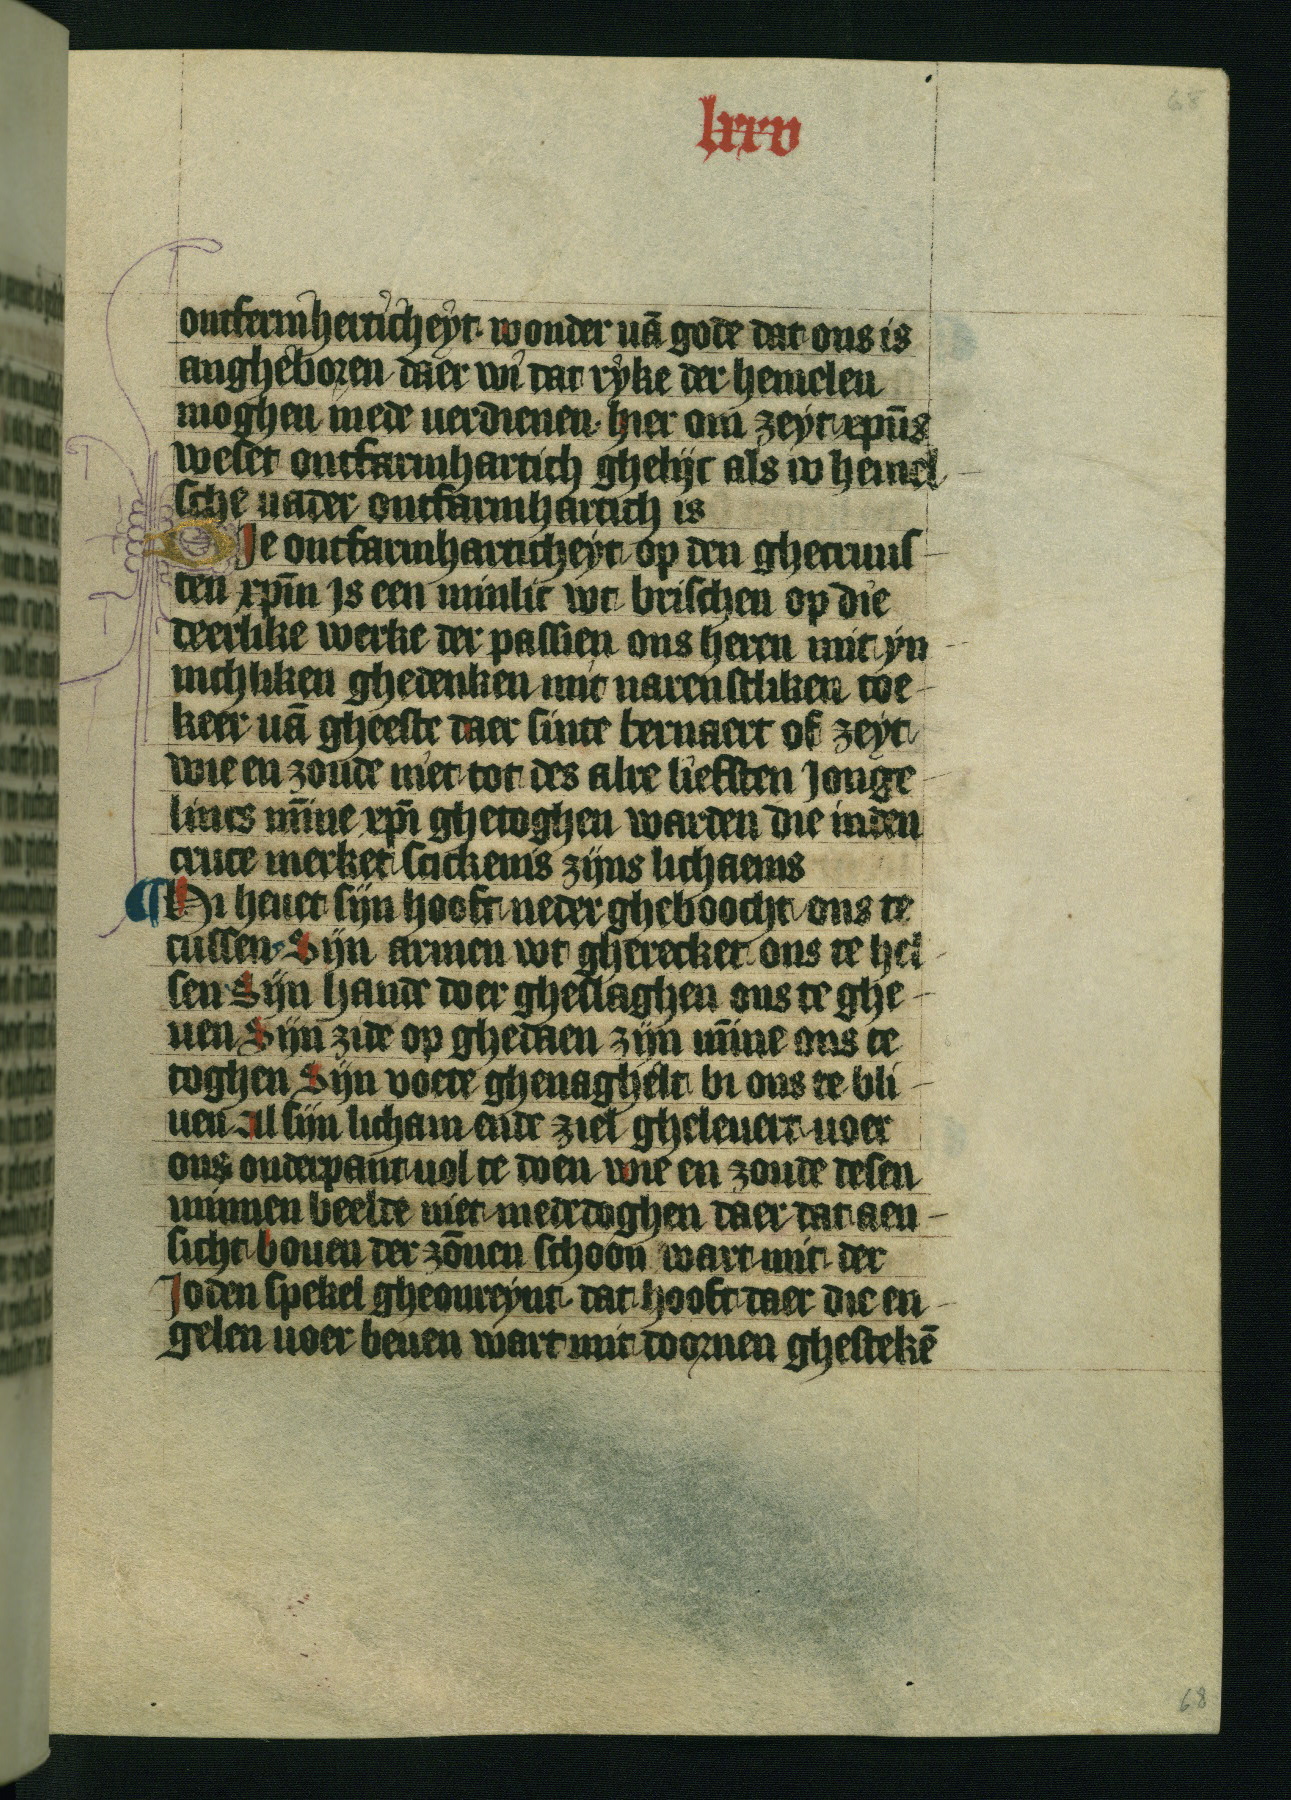 lxxv
68
ontfermherticheyt wonder uā gode dat ons is
angheboren daer wi dat ryke der hemelen
moghen mede uerdienen hier om zeyt xpūs
weset ontfarmhartich ghelijc als iv hemel
sche uader ontfarmhartich is
Die ontfarmharticheyt op den ghecruus
ten xpm̄ Is een minlic wt brischen op die
deerlike werke der passien ons heren mit yn
nichliken ghedenken mit narenstliken toe
keer uā gheeste daer sinte bernaert of zeyt
wie en zoude niet tot des alre liefsten Ionge
lincs m̄ine xpī ghetoghen warden die inden
cruce merket scickenis zijns lichaems
Hi heuet sijn hooft neder gheboocht ons te
cussen Sijn armen wt gherecket ons te hel
sen Sijn hande doer gheslaghen ons te ghe
uen Sijn zide op ghedaen zijn m̄ine ons te
toghen Sijn voete ghenaghelt bi ons te bli
uen Al sijn licham ende ziel gheleuert uoer
ons onderpant uol te doen wie en zoude desen
minnen beelde niet mededoghen daer dat aen
sicht bouen der zōnen schoon wart mit der
Ioden spekel gheonreynt dat hooft daer die en
gelen uoer beuen wart mit doornen ghestekē
68